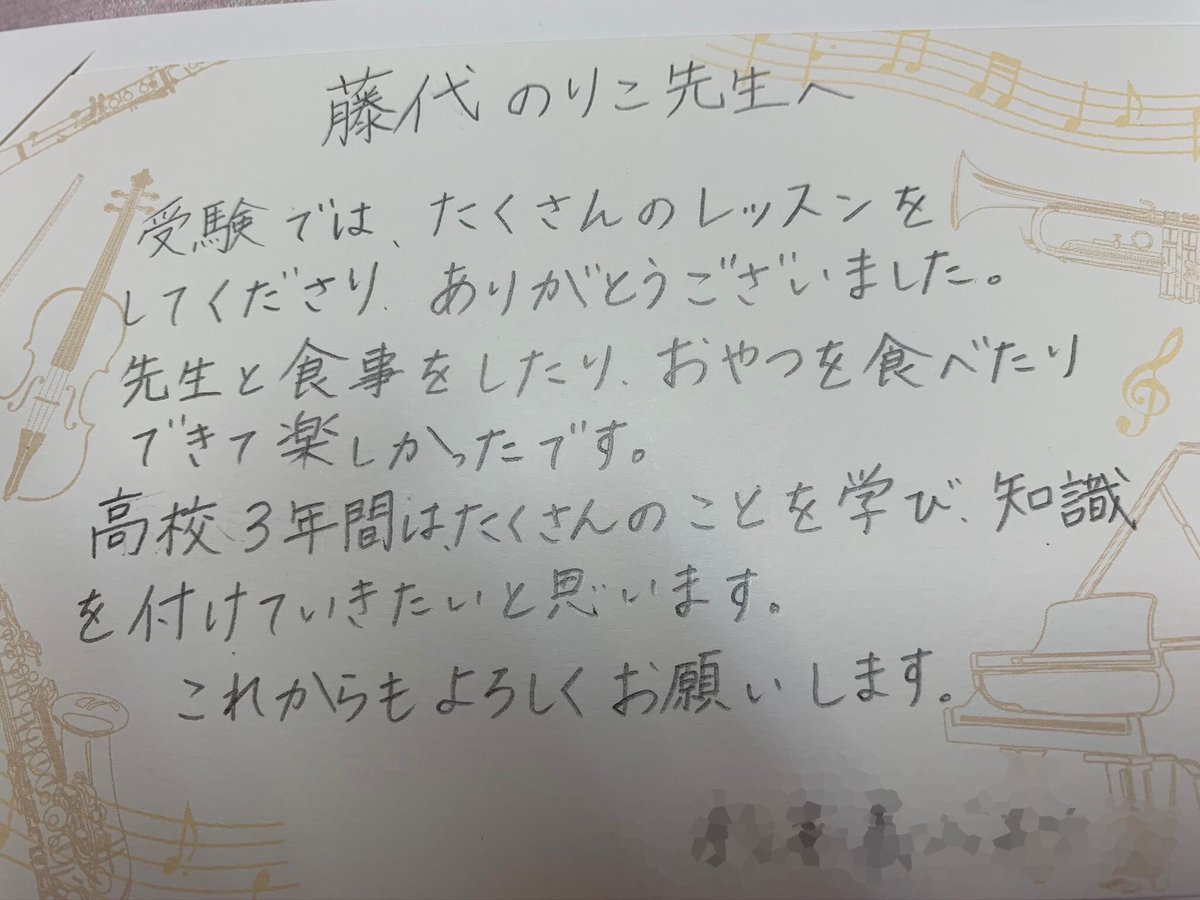 藤代のりこ先生へ
受験では、たくさんのレッスンを
してくださり、ありがとうございました。
先生と食事をしたり、おやつを食べたり
できて楽しかったです。
高校3年間は、たくさんのことを学び、知識
を付けていきたいと思います。
これからもよろしくお願いします。